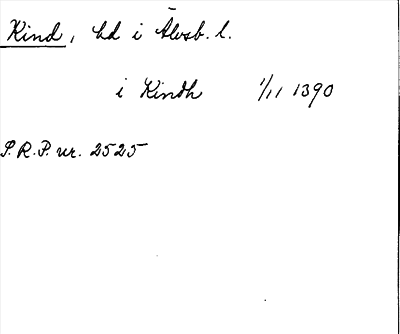 Kind, hd i Älvsb. l.
i Kindh 1/11 1390
P.R.P. nr. 2525